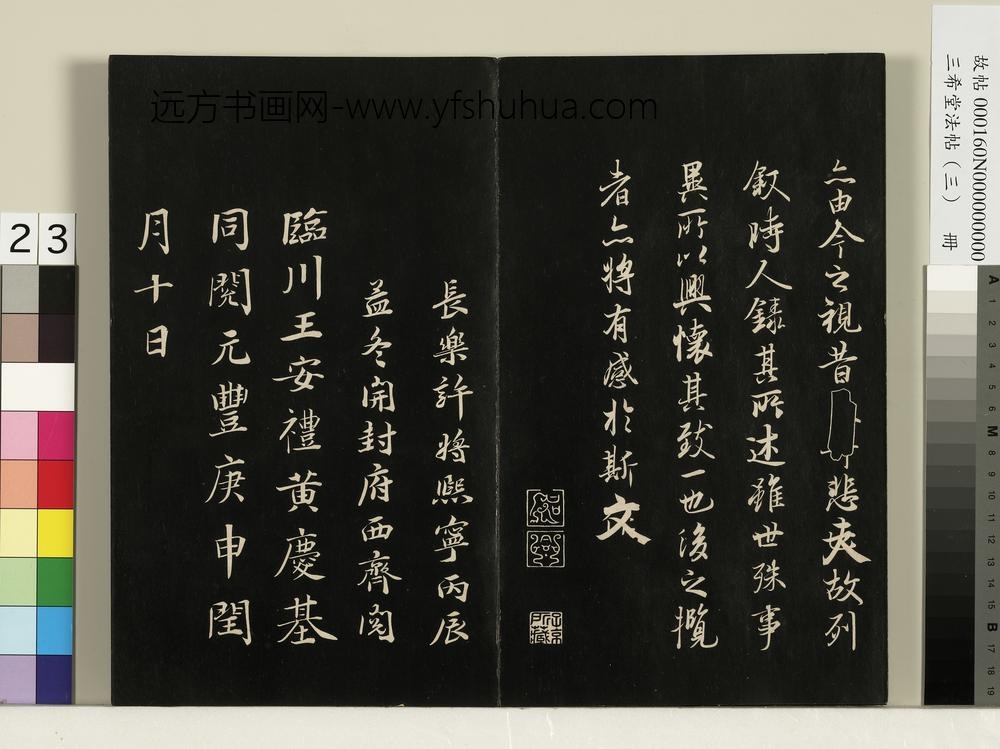 远方书画网-www.yfshuhua.com
故帖 000160N000000000
三希堂法帖（三） 冊
亦由今之視昔悲夫故列
叙時人錄其所述雖世殊事
異所以興懷其致一也後之攬
者亦將有感於斯文
長樂許將熙寧丙辰
孟冬開封府西齋閱
臨川王安禮黃慶基
同閱元豐庚申閏
月十日
23
A 1 2 3 4 5 6 M 8 9 10 11 12 13 14 15 B 17 18 19